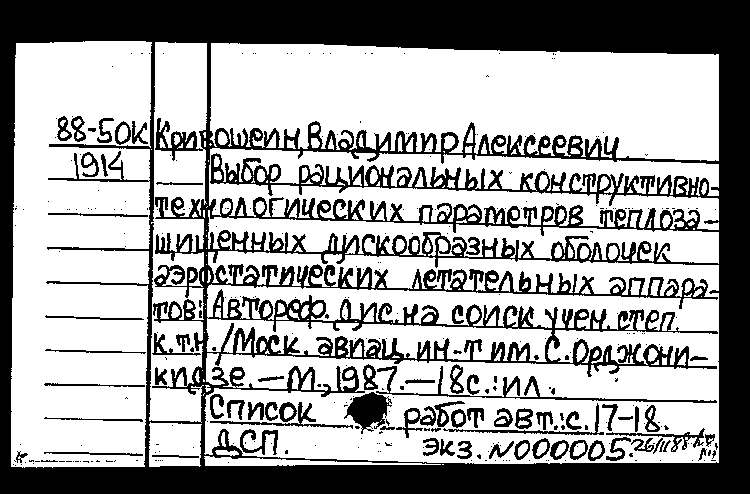 88-50К Кривошеин, Владимир Алексеевич
1914 Выбор рациональных конструктивно-
технологических параметров теплоза-
щищенных дискообразных оболочек
аэростатических летательных аппара-
тов: Автореф. дис. на соиск. учен. степ.
к.т.н. /Моск. авиац. ин-т им. С. Орджони-
кидзе. — М., 1987. — 18 с.: ил.
Список работ авт.: с. 17-18.
ДСП. Экз. N000005.